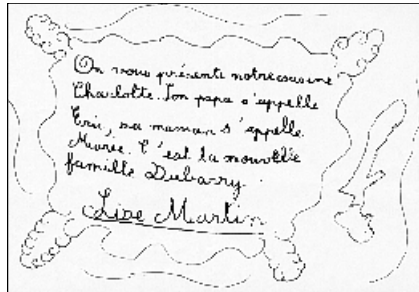 On vous présente notre cousine
Charlotte. Son papa s'appelle
Eric, sa maman s'appelle
C'est la nouvelle
famille Dubarry.
Lise Martin